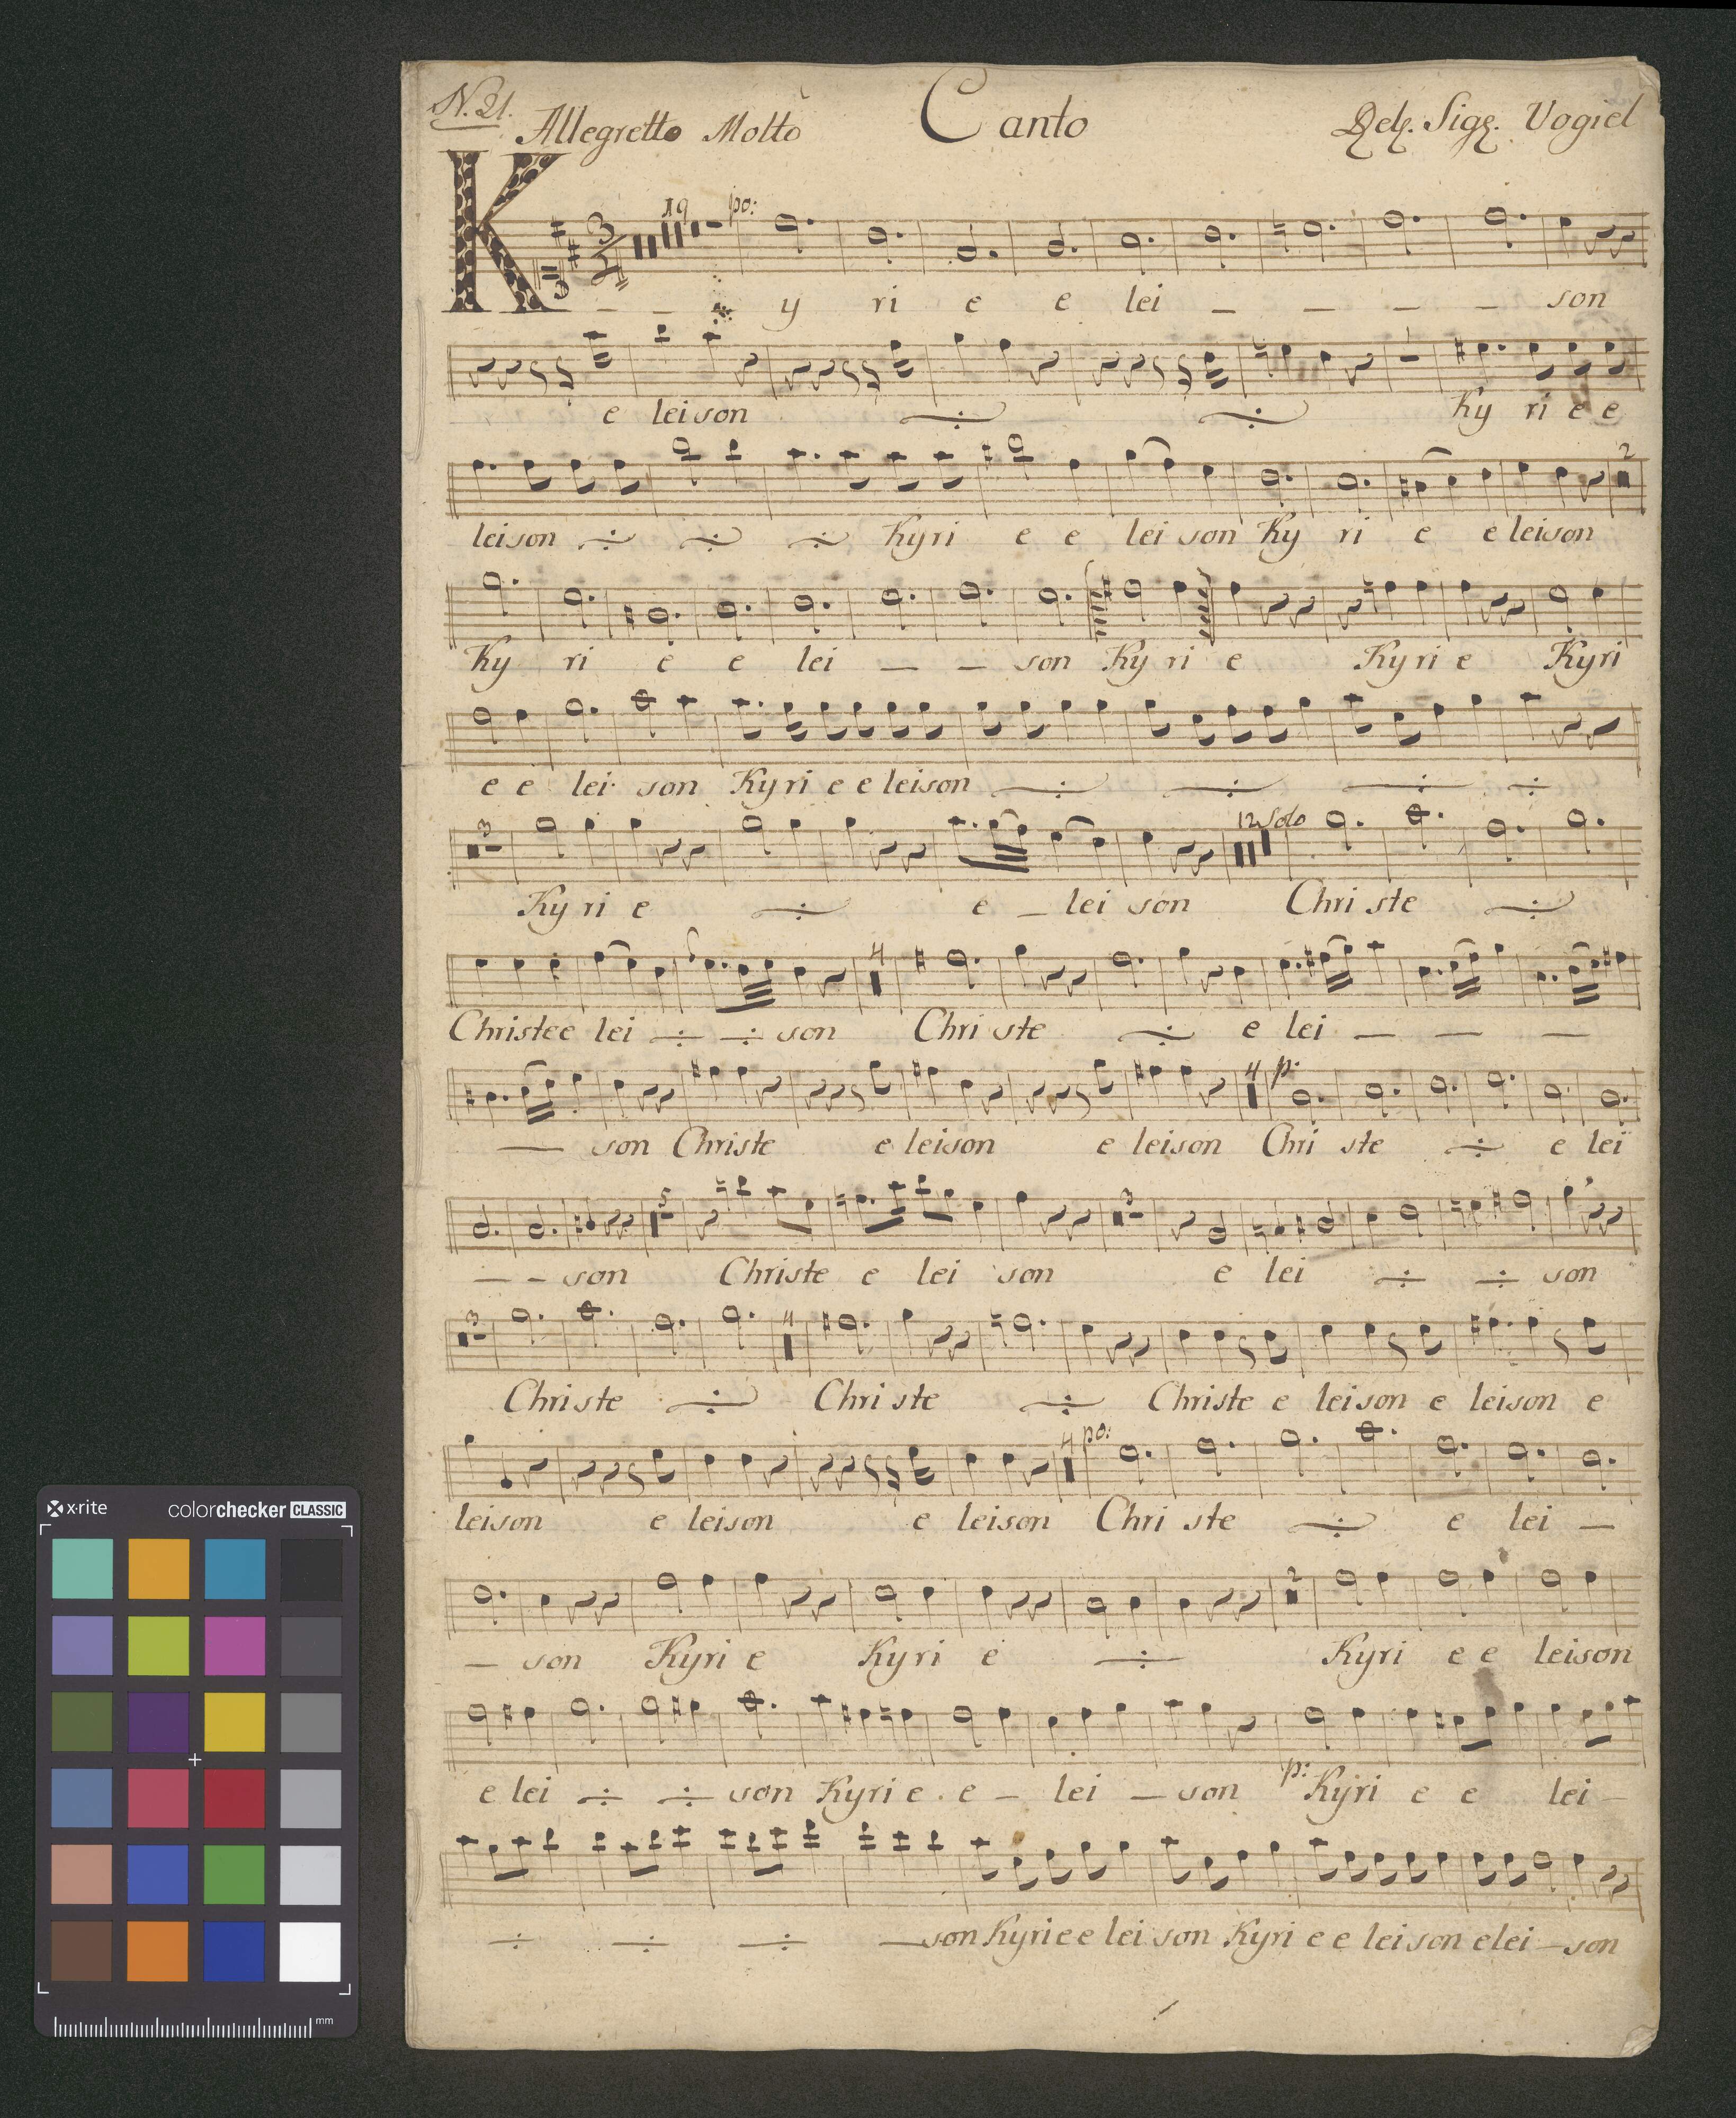 N. 21. Allegretto Molto Canto Del. Sigr. Vogiel
19 po:
K y ri e e lei _ _ _ _ son
e lei son Ky ri e e
2
leison Kyri e e lei son Ky ri e e leison
Ky ri e e lei _ _ son Ky ri e Ky ri e Kyri
e e lei son Ky ri e e leison
3 12 Solo
Ky ri e e _ lei son Chri ste
4
Christe e lei son Chri ste e lei _ _ _
4 p:
_ son Christe e leison e leison Chri ste e lei
5 3
_ _ son Christe e lei son e lei son
3 4
Chri ste Chri ste Christe e leison e leison e
4 po:
leison e leison e leison Chri ste e lei _
2
_ son Kyri e Kyri e Kyri e e leison
e lei son Kyri e e _ lei _ son p: Kyri e e lei _
_ son Kyri e e lei son Kyri e e leison e lei _ son
x·rite colorchecker CLASSIC
mm